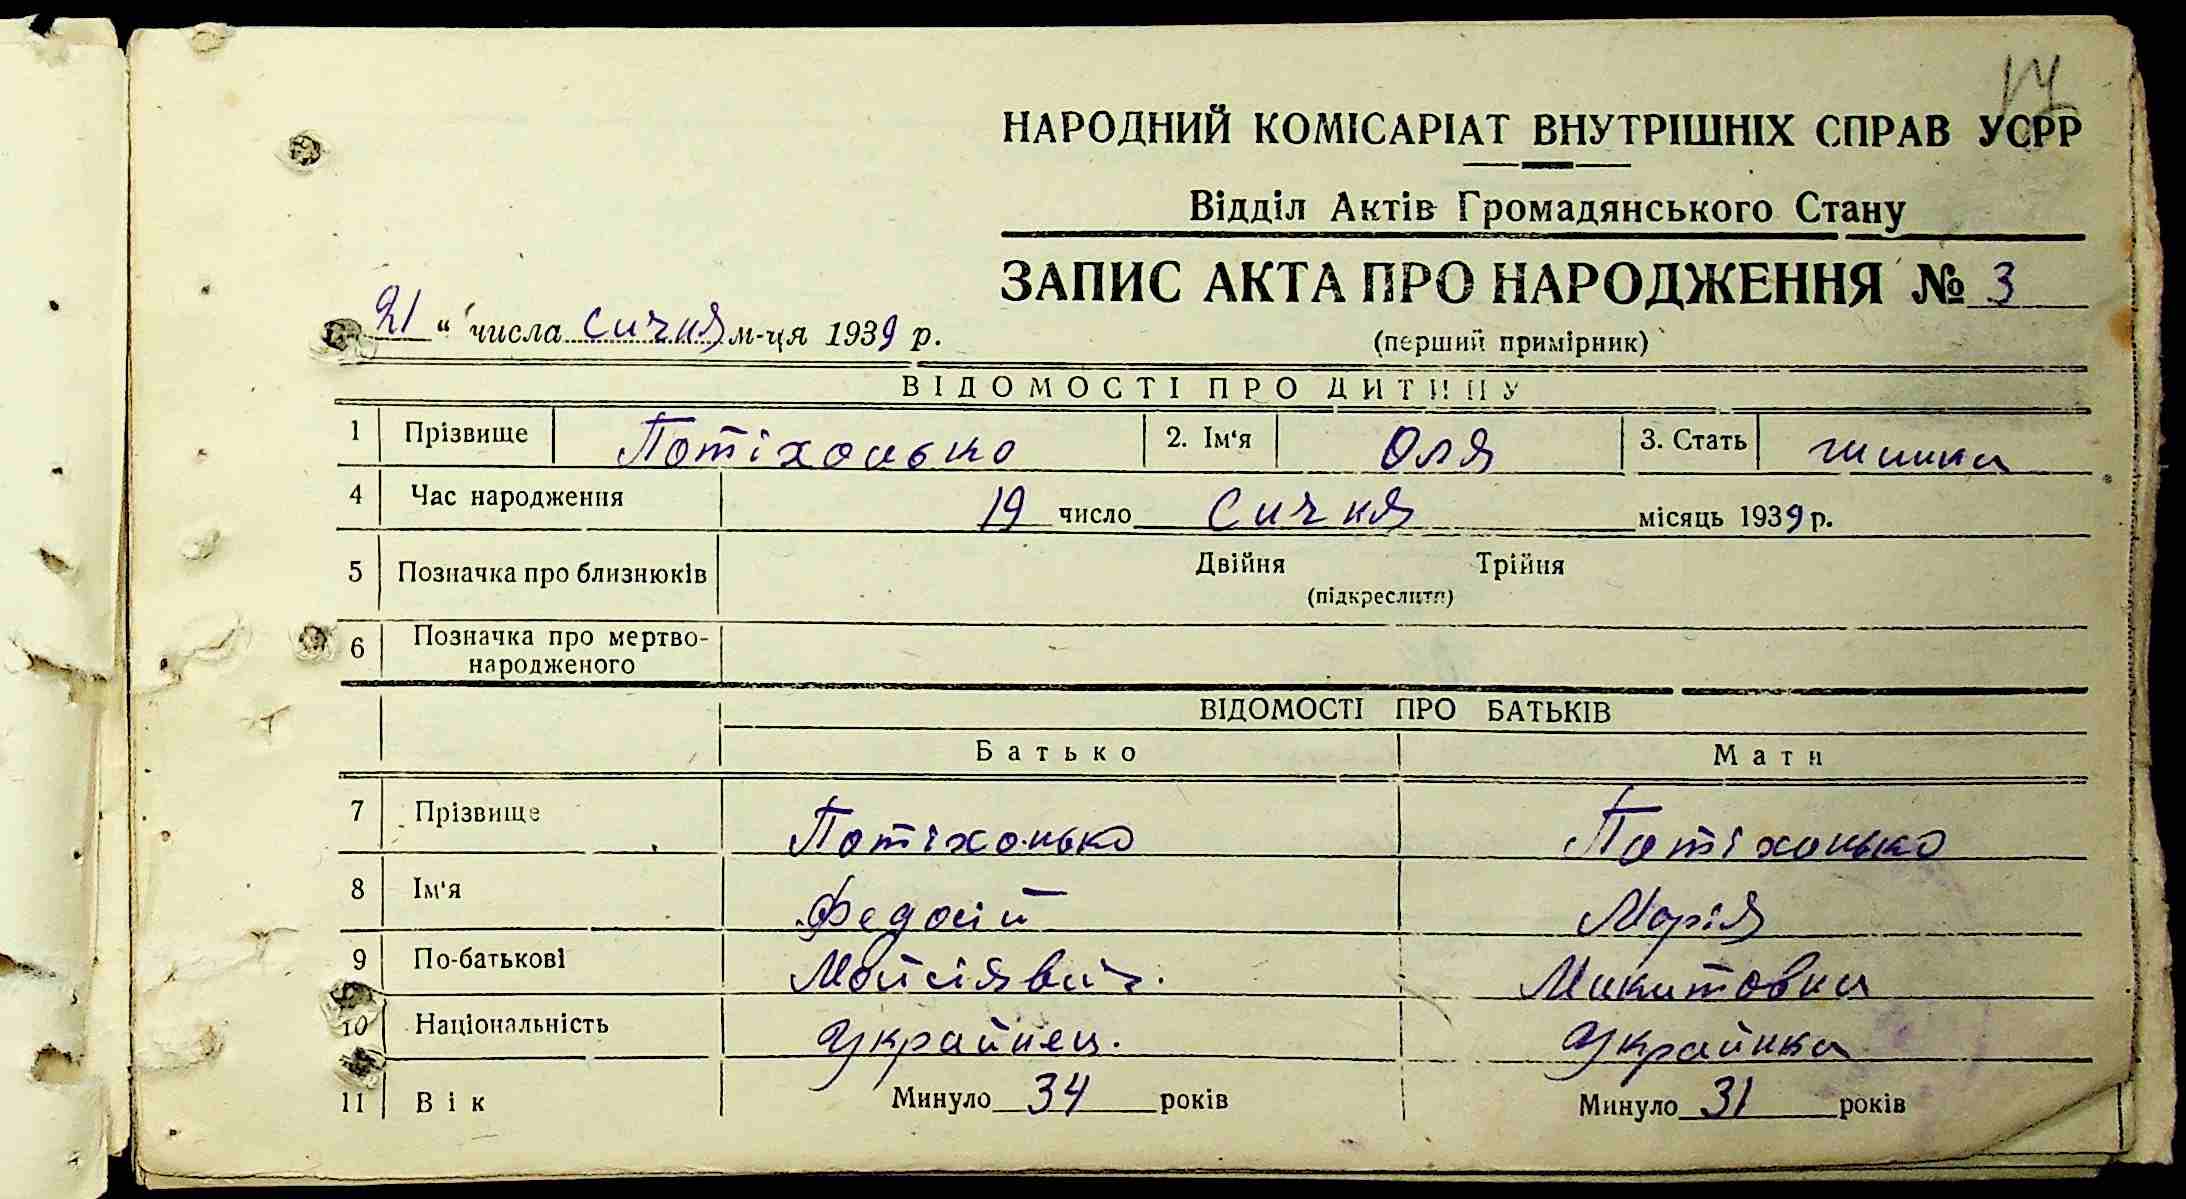 17
НАРОДНИЙ КОМІСАРІАТ ВНУТРІШНІХ СПРАВ УСРР
Відділ Актів Громадянського Стану
ЗАПИС АКТА ПРО НАРОДЖЕННЯ № 3
21 " числа сичня м-ця 1939 р.
(перший примірник)
ВІДОМОСТІ ПРО ДИТИНУ
1 Прізвище Потіхонько 2. Ім'я Оля 3. Стать
4 Час народження 19 число сичня місяць 1939 р.
5 Позначка про близнюків Двійня Трійня
(підкреслити)
6 Позначка про мертво-
народженого
ВІДОМОСТІ ПРО БАТЬКІВ
Батько Мати
7 Прізвище Потіхонько Потіхонько
8 Ім'я Федосій Марія
9 По-батькові Мойсіявич. Микитовна
10 Національність Украйнец. Украйнка
11 Вік Минуло 34 років Минуло 31 років